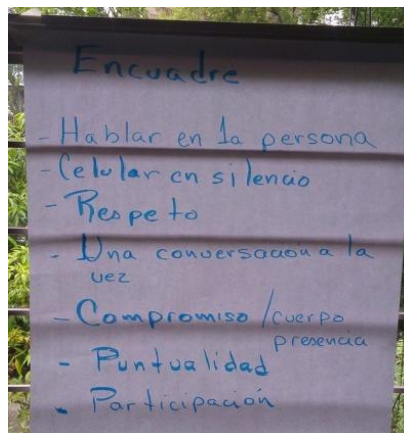 Encuadre
- Hablar en 1a persona
- Celular en silencio
- Respeto
- Una conversacion a la
vez
- Compromiso / cuerpo
presencia
- Puntualidad
- Participación